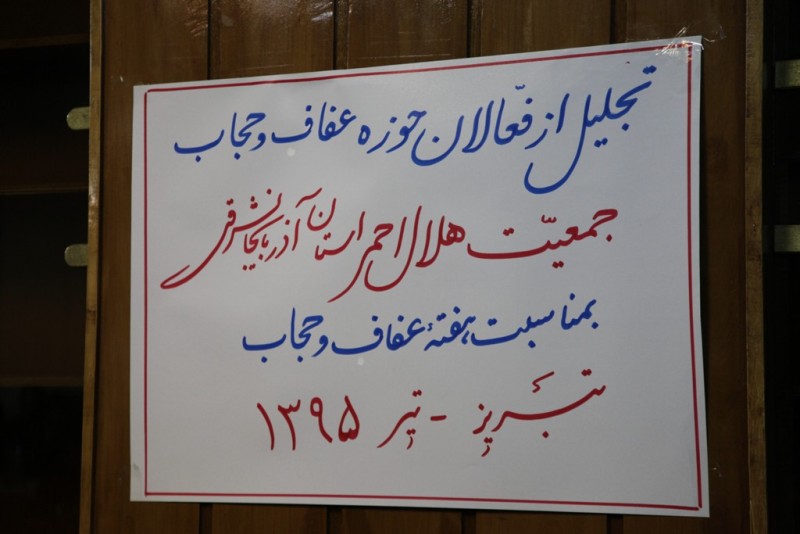 تجلیل از فعّالان حوزه عفاف و حجاب
جمعیّت هلال احمر استان آذربایجانشرقی
بمناسبت هفتهٔ عفاف و حجاب
تبریز - تیر ۱۳۹۵